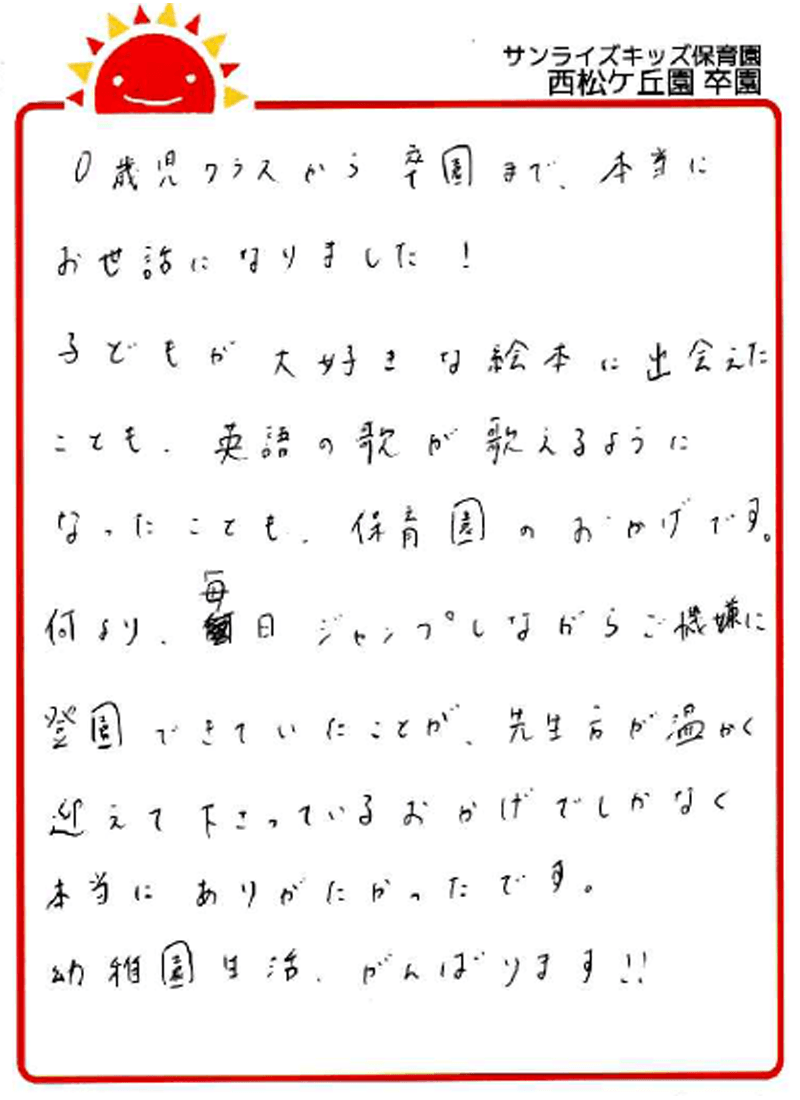 サンライズキッズ保育園
西松ケ丘園 卒園
0歳児クラスから 卒園まで、本当に
お世話になりました！
子どもが大好きな絵本に出会えた
ことも、英語の歌が歌えるように
なったことも、保育園のおかげです。
何より、毎日ジャンプしながらご機嫌に
登園できていたことが、先生方が温かく
迎えて下さっているおかげでしかなく
本当にありがたかったです。
幼稚園生活、がんばります!!